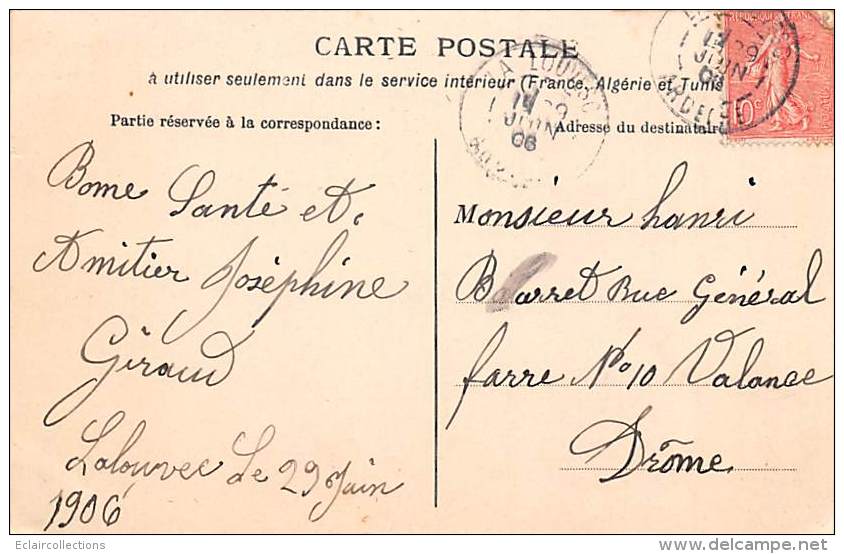 CARTE POSTALE
à utiliser seulement dans le service intérieur (France, Algérie et Tunis
Partie réservée à la correspondance :
Adresse du destinataire
LALOUVESC
29
JUIN
06
ARDECHE
Bonne Santé et
Amitier Joséphine
Giraud
Lalouvec Le 29 Juin
1906
Monsieur hanri
Barret Rue Général
farre No 10 Valance
Drôme
Eclaircollections
www.delcampe.net